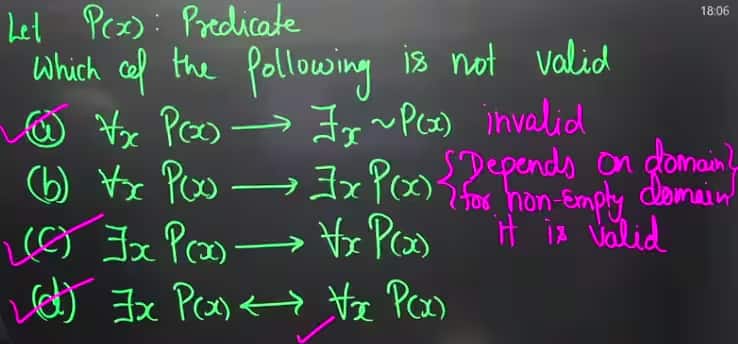 18:06
Let P(x): Predicate
Which of the following is not valid
(a) ∀x P(x) ⟶ ∃x ~P(x) invalid
(b) ∀x P(x) ⟶ ∃x P(x) {Depends on domain}
{for non-Empty domain
it is valid
(c) ∃x P(x) ⟶ ∀x P(x)
(d) ∃x P(x) ⟷ ∀x P(x)